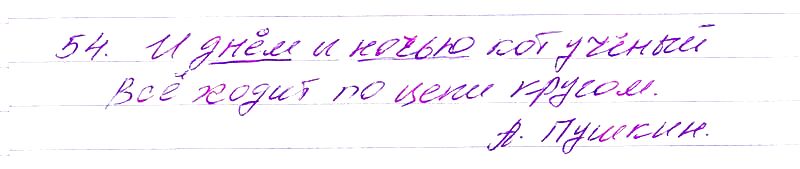 54. И днём и ночью кот учёный
Всё ходит по цепи кругом.
А. Пушкин.